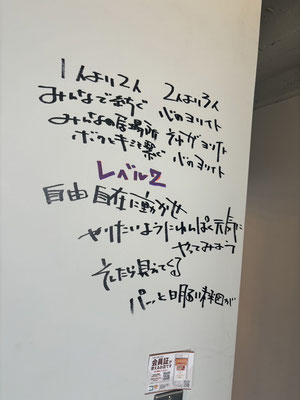 1人より2人 2人より3人
みんなで紡ぐ 心のヨリイト
みんなの居場所 それがヨリイト
ボクとキミを繋ぐ 心のヨリイト
レベルZ
自由自在に動かせ
やりたいようにわんぱく元気に
やってみよう
そしたら見えてくる
パーッと明るい未来図が
会員証で